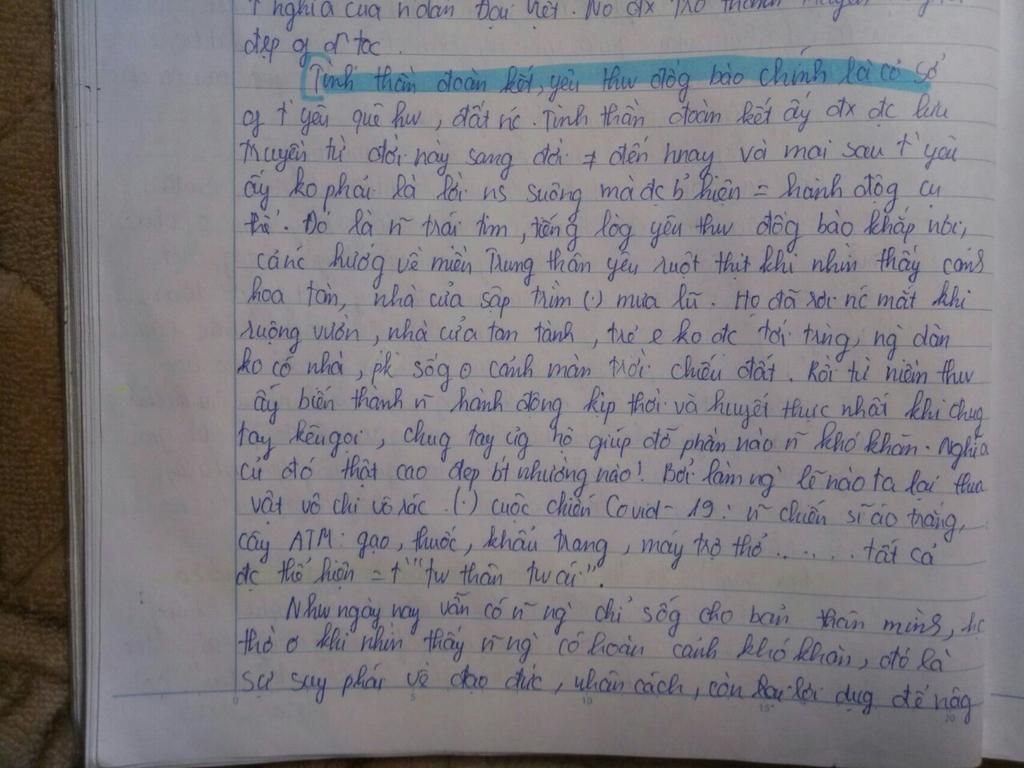 nghĩa của ndân Đại Việt. Nó đx trở thành truyền
đẹp of dtộc.
Tinh thần đoàn kết, yêu thw đồg bào chính là cơ sở
of t' yêu quê hw, đất nc. Tinh thần đoàn kết ấy đx đc lưu
truyền từ đời này sang đời ≠ đến hnay và mai sau t' yêu
ấy ko phải là lời ns suông mà đc b' hiện = hành độg cụ
thể. Đó là n~ trái tim, tiếng lòg yêu thw đồg bào khắp nơi,
cả nc hướg về miền Trung thân yêu ruột thịt khi nhìn thấy cảnh
hoa tàn, nhà cửa sập trìm (.) mưa lũ. Họ đã rơi nc mắt khi
ruộng vườn, nhà cửa tan tành, trẻ e ko đc tới trừng, ng dân
ko có nhà, pk sốg o cảnh màn trời chiếu đất. Rồi từ niềm thw
ấy biến thành n~ hành động kịp thời và huyết thực nhất khi chug
tay kêu gọi, chug tay ủg hộ giúp đỡ phần nào n~ khó khăn. Nghĩa
cử đó thật cao đẹp bt nhường nào! Bởi làm ng` lẽ nào ta lại thua
vật vô chi vô rác. (.) cuộc chiến Covid-19: n~ chiến sĩ áo trắng,
cây ATM: gạo, thuốc, khẩu trang, máy trợ thở...... tất cả
đc thể hiện = t' "tw thân tw ái".
Nhw ngày nay vẫn có n~ ng` chỉ sốg cho bản thân mình,
thờ ơ khi nhìn thấy n~ ng` có hoàn cảnh khó khăn, đó là
sự suy phái về đạo đức, nhân cách, còn lợi dụg để nâg